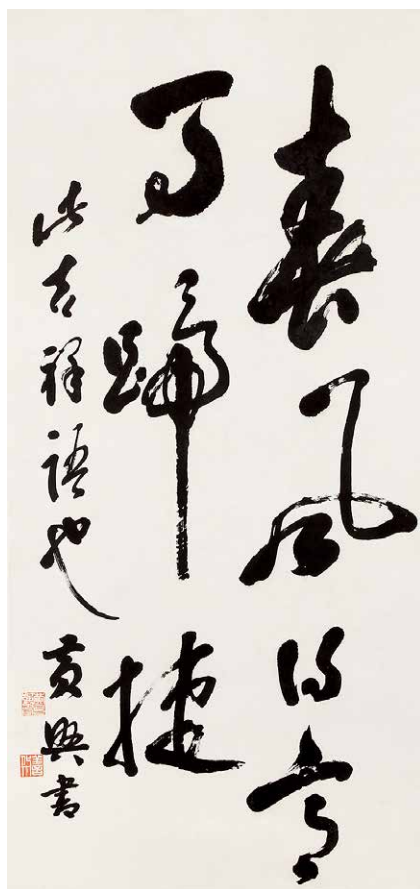 春風得意
馬蹄捷
此吉祥語也 黃興書